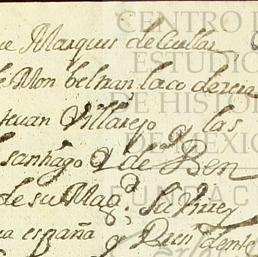 ue Marques de Cuellar
de Mon beltran, laco desera
stevan Villarejo y las
santiago y de Ben
de su Mag.d su Virrey
ua españa y Presidente
CENTRO
ESTUDIO
DE HISTOR
DE MEXICO
FUNDAC